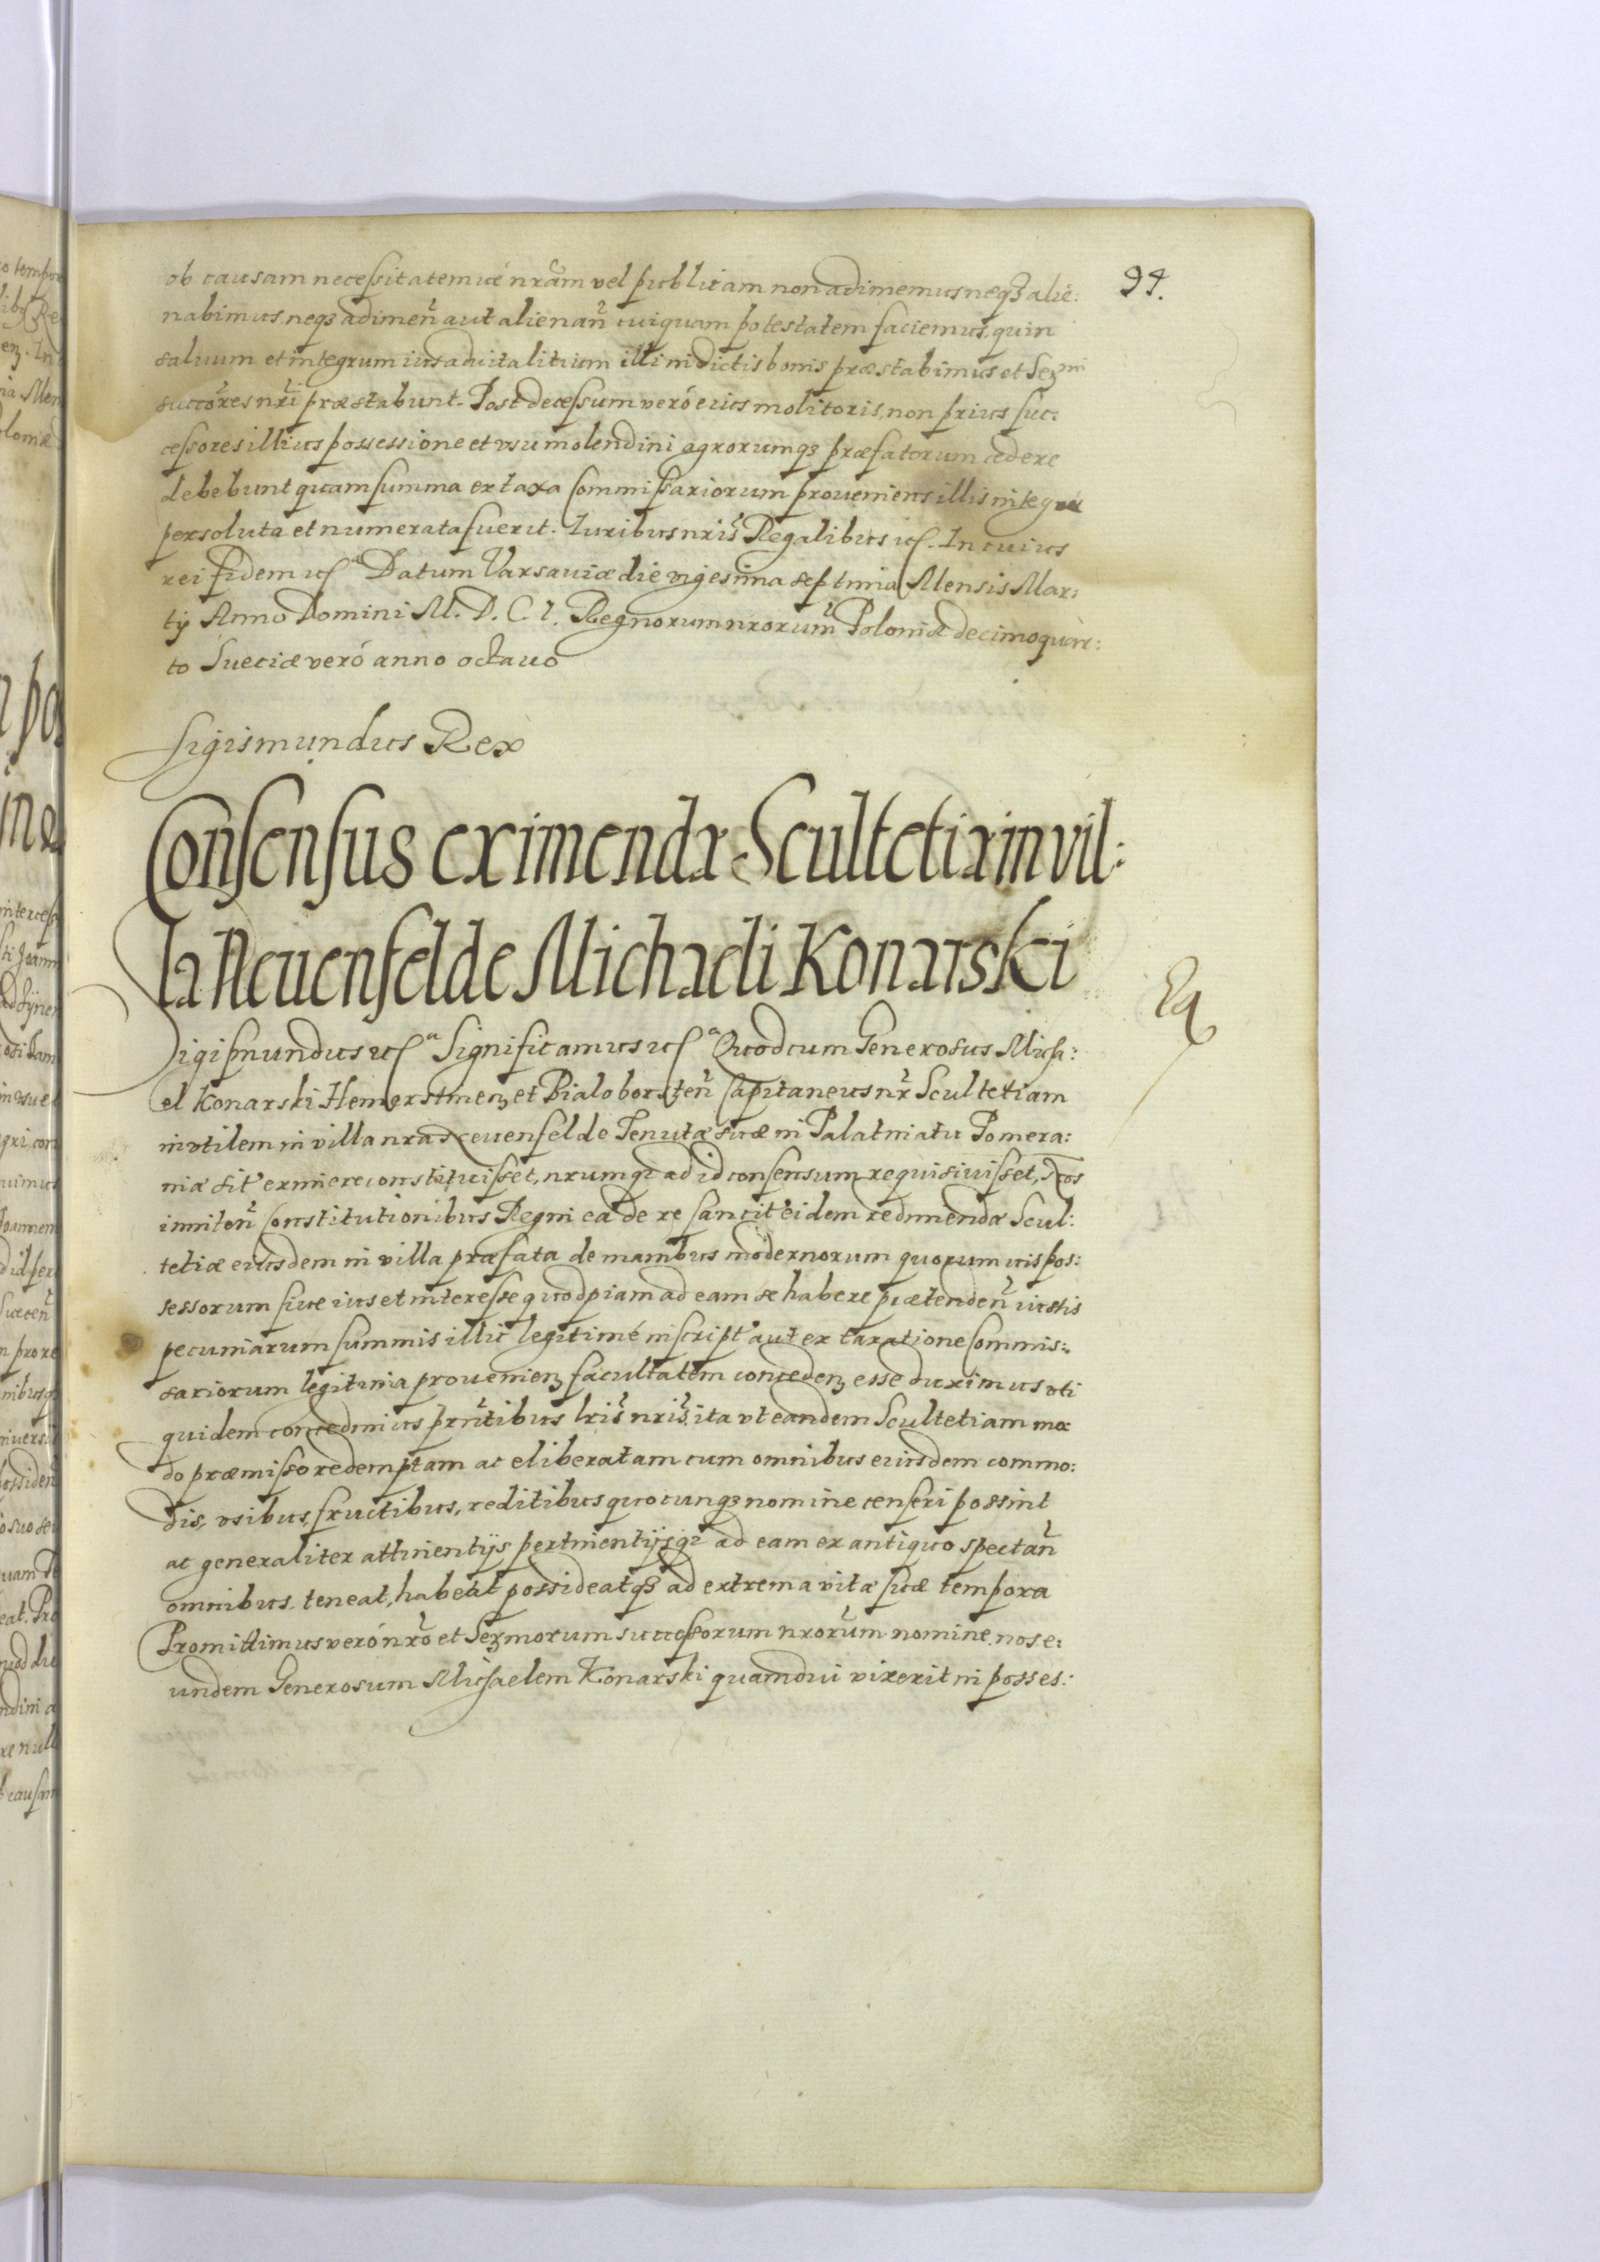 94.
ob causam necessitatemúe nrãm vel publicam non adimemus neqȝ alie:
nabimus, neqȝ adimeñ aut alienañ cuiquam potestatem faciemus, quin
saluum et integrum ius aduitalitium illi in dictis bonis præstabimus et Serᵐⁱ
succõres nr̃i præstabunt. Post decessum veró eius molitoris, non prius suc:
cessores illius possessione et vsu molendini agrorumqȝ præfatorum cedere
debebunt quam summa ex taxa Commissariorum proueniens illis integra
persoluta et numerata fuerit. Iuribus nris̃ Regalibus etc. In cuius
rei fidem etc Datum Varsauiæ die vigesima septima Mensis Mar:
tij Anno Domini M. D. C. I. Regnorum nrorum̃ Poloniæ decimoquar:
to Sueciæ veró anno octauo
Sigismundus Rex
Consensus eximendæ Scultetiæ in vil:
la Neuenfelde Michaeli Konarski
Sigismundus etc Significamus etc Quod cum Generosus Micha:
el Konarski Hemerstineñ et Bialoborszeñ Capitaneus nr̃ Scultetiam
inutilem in villa nra Neuenfelde Tenutæ suæ in Palatinatu Pomera:
niæ sit' eximere constituisset, nrumqȝ ad id consensum requisiuisset, Nos
inniteñ Constitutionibus Regni ea de re sancit' eidem redimendæ Scul:
tetiæ eiusdem in villa præfata de manibus modernorum quorumuis pos:
sessorum siue ius et interesse quodpiam ad eam se habere prætendeñ iustis
pecuniarum summis illic legitimé inscript' aut ex taxatione Commis:
sariorum legitima prouenieñ facultatem concedeñ esse duximus vti
quidem concedimus prñtibus lris̃ nris̃, ita vt eandem Scultetiam mo
do præmisso redemptam ac eliberatam cum omnibus eiusdem commo:
dis, vsibus, fructibus, reditibus quocunqȝ nomine censeri possint
ac generaliter attinentijs pertinentijsqȝ ad eam ex antiquo spectañ
omnibus. teneat, habeat possideatqȝ ad extrema vitæ suæ tempora
Promittimus veró nr̃o et Serᵐorum successorum nrorum̃ nomine, nos e:
undem Generosum Michaelem Konarski quamdiu vixerit in posses: